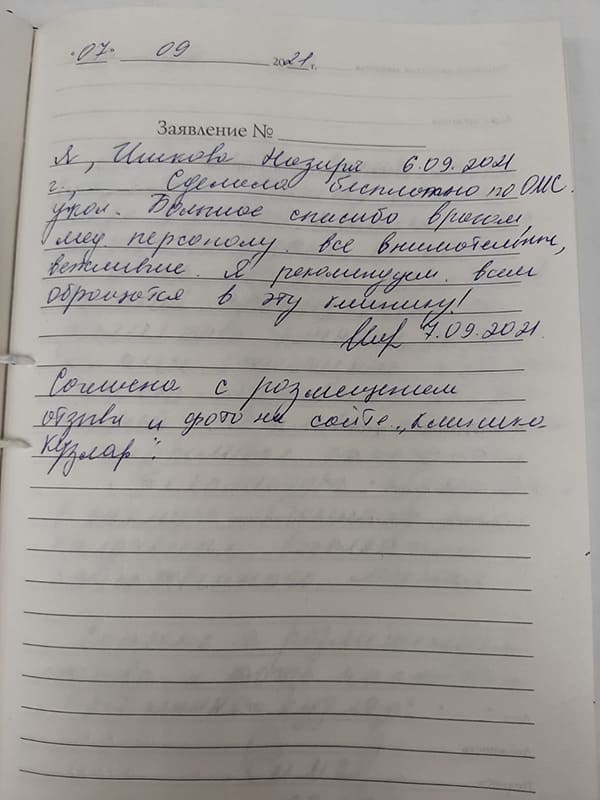 "07" 09 2021 г.
Заявление №
Я, Ишкова Назиря 6.09.2021
г., Сделала бесплатно по ОМС.
укол. Большое спасибо врачам,
мед. персоналу. все внимательные,
вежливые. Я рекомендуем всем
обращатся в эту клинику!
7.09.2021
Согласна с размещением
отзыва и фото на сайте "клиника
Кузляр".